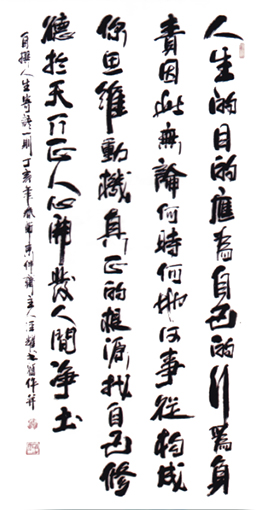 人生的目的應為自己的行為負
責因此無論何時何地何事從構成
你思維動機真正的根源找自己修
德於天下正人心開發人間淨土
自撰人生寄語一則丁亥年